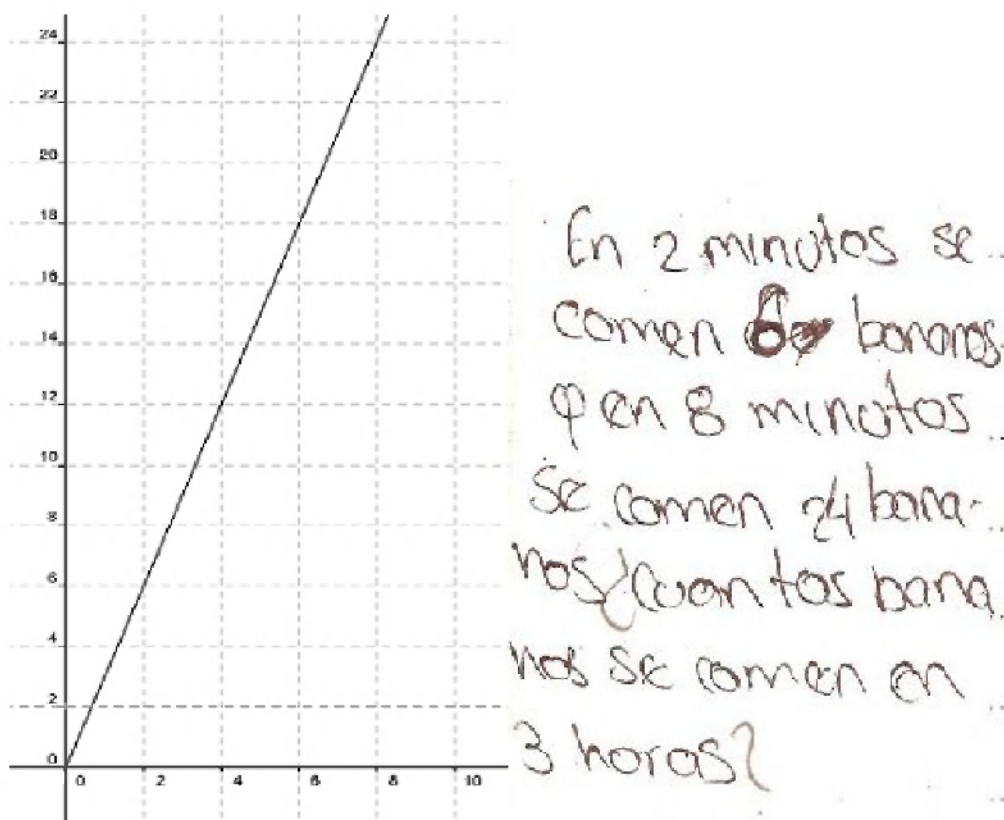 24
22
20
18
16
14
12
10
8
6
4
2
0
0 2 4 6 8 10
En 2 minutos se
comen 6 bananos
y en 8 minutos
se comen 24 bana-
nos ¿Cuantos bana
nos se comen en
3 horas?